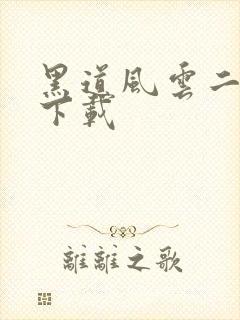 黑道風雲二
下載
離離之歌